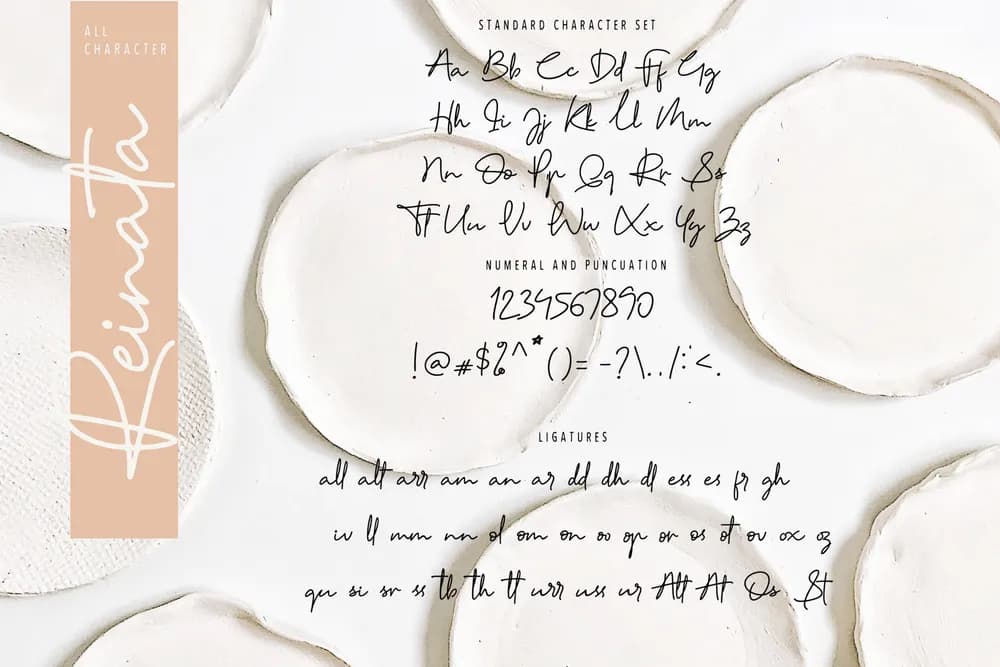 ALL
CHARACTER
Reinata
STANDARD CHARACTER SET
Aa Bb Cc Dd Ff Gg
Hh Ii Jj Kk Ll Mm
Nn Oo Pp Qq Rr Ss
Tt Uu Vv Ww Xx Yy Zz
NUMERAL AND PUNCUATION
1234567890
!@#$%^*()= -?\../:'<.
LIGATURES
all alt arr am an ar dd dh dl ess es fr gh
iv ll mm nn ol om on oo op or os ot ov ox oz
qu si sr ss tb th tt urr uss ur Att At Os St